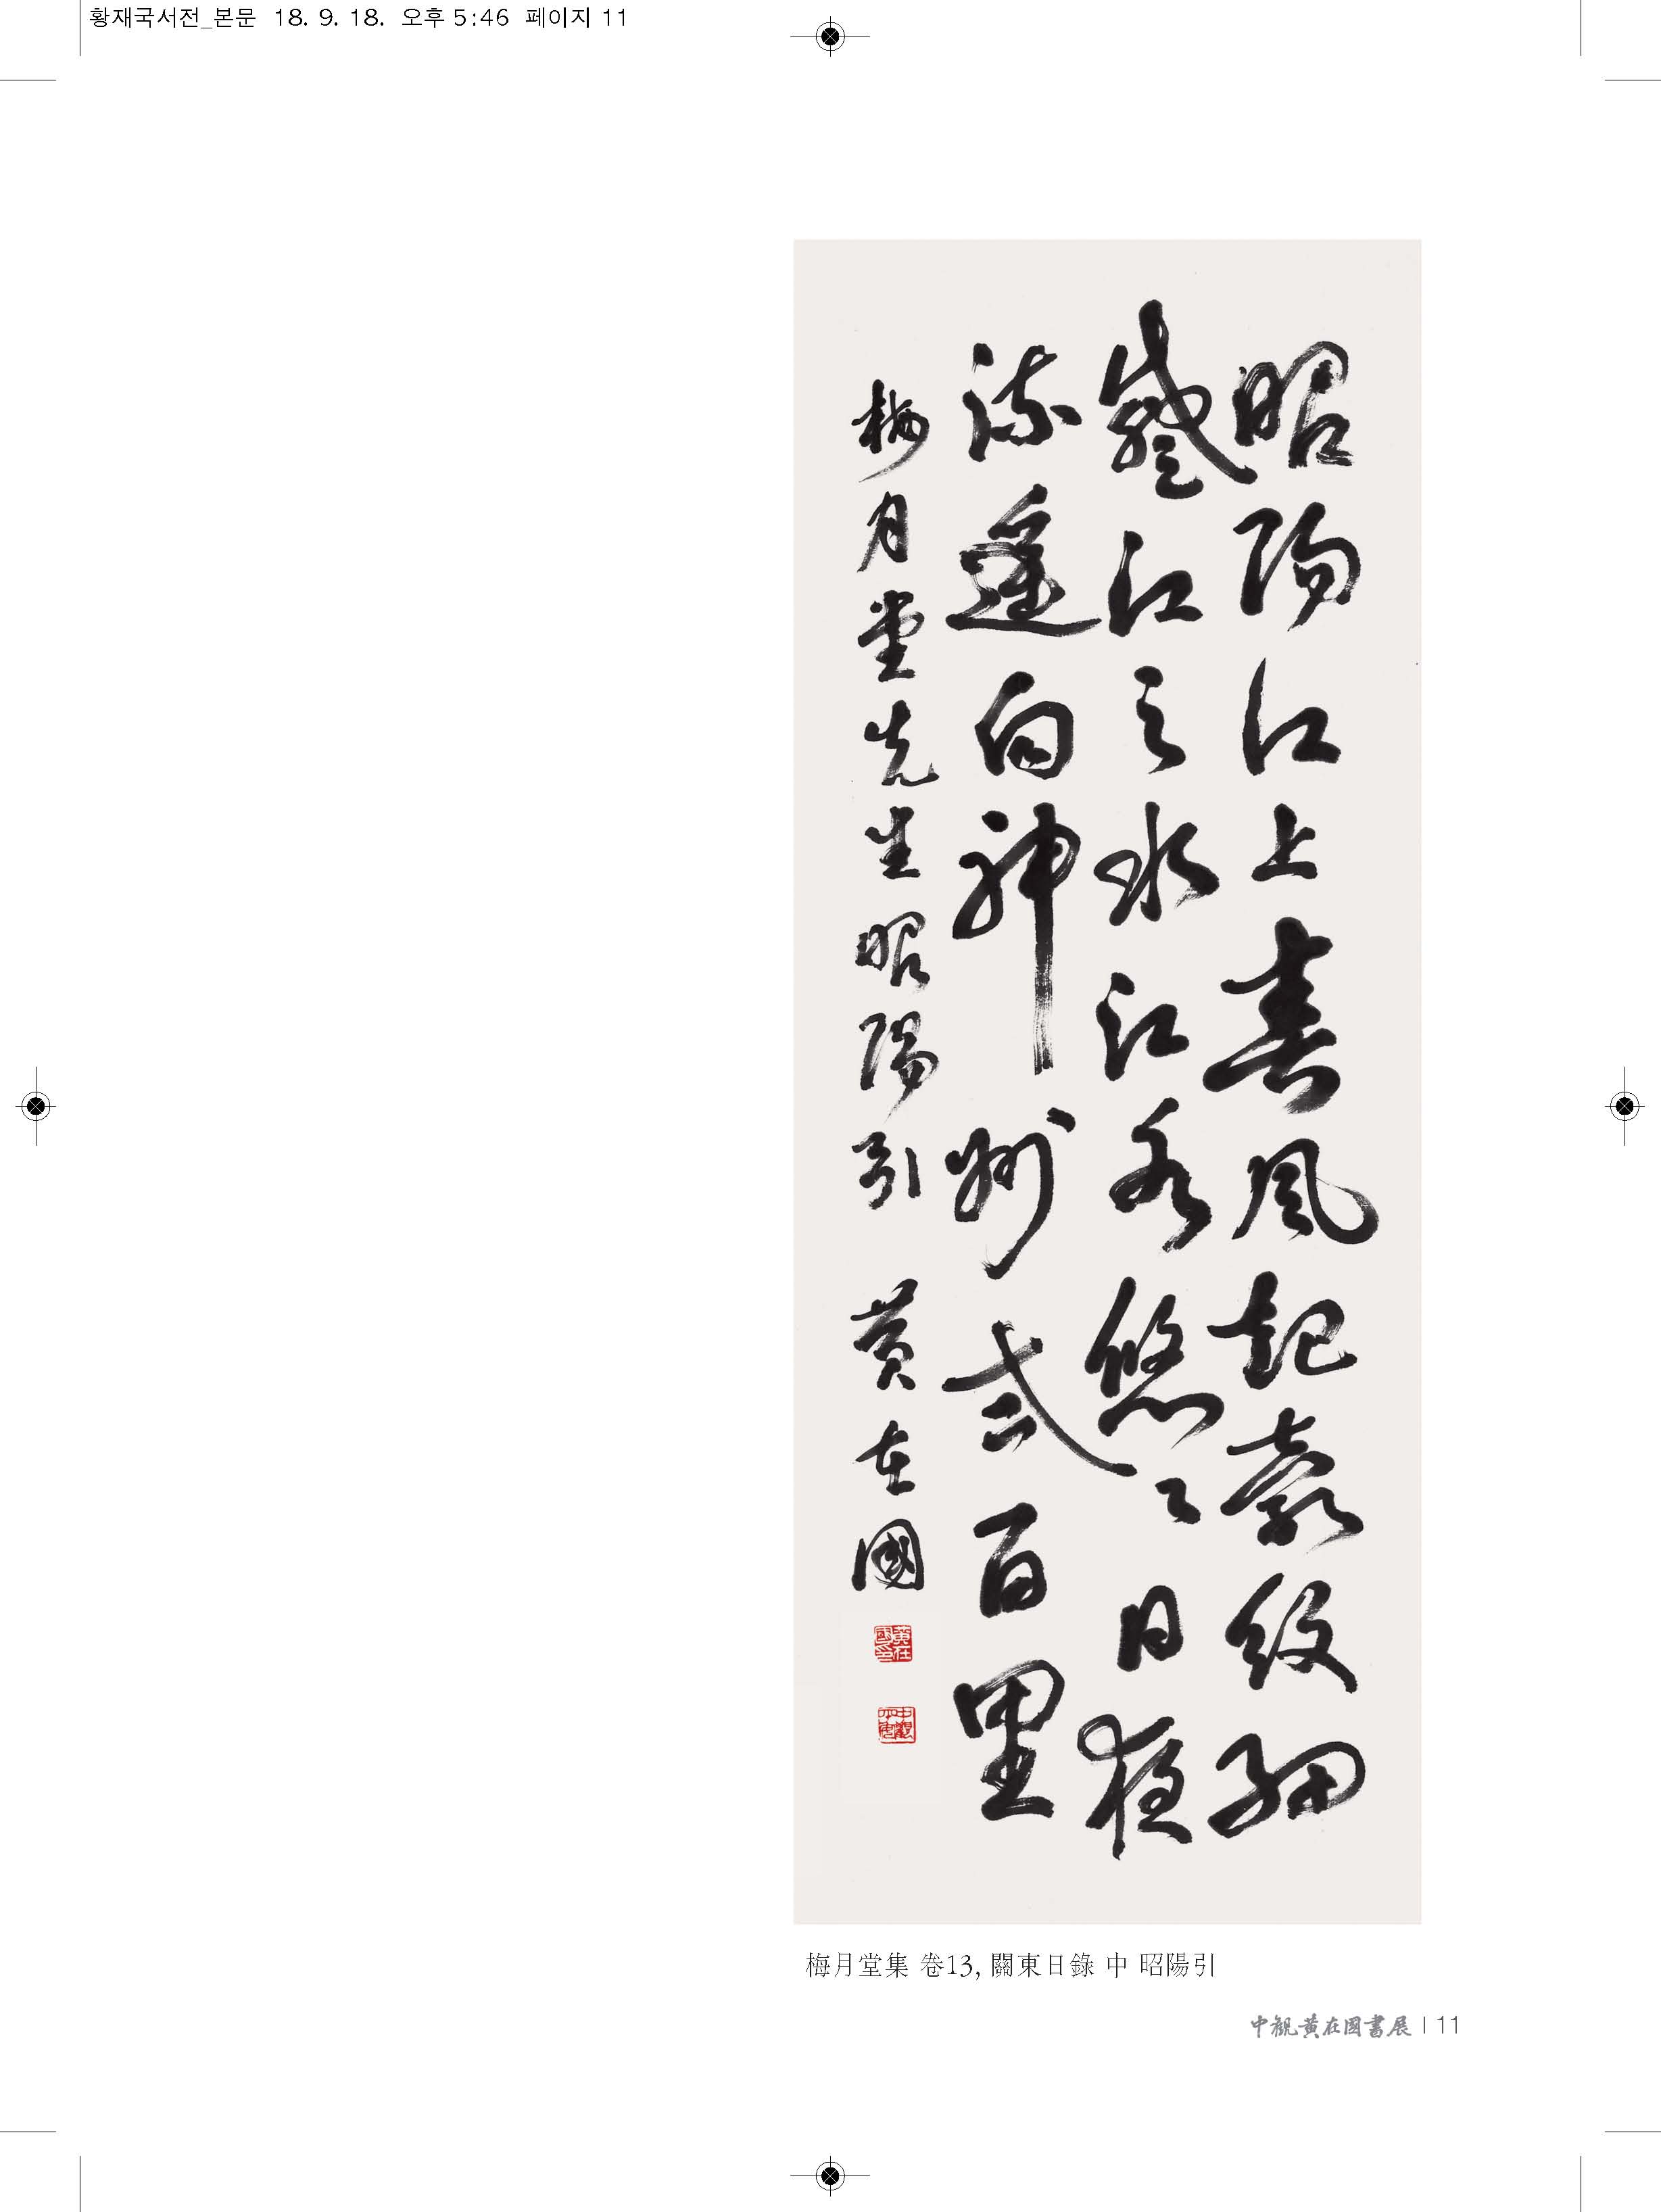 황재국서전_본문 18. 9. 18. 오후 5:46 페이지 11
昭陽江上春風起縠紋細
蹙江之水江水悠々日夜
流遙向神州弍百里
梅月堂先生昭陽引 黃在國
黃在國印
梅月堂集 卷13, 關東日錄 中 昭陽引
中観黄在國書展 | 11